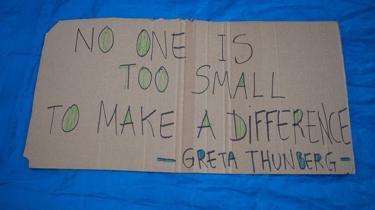 NO ONE IS
TOO SMALL
TO MAKE A DIFFERENCE
- GRETA THUNBERG -